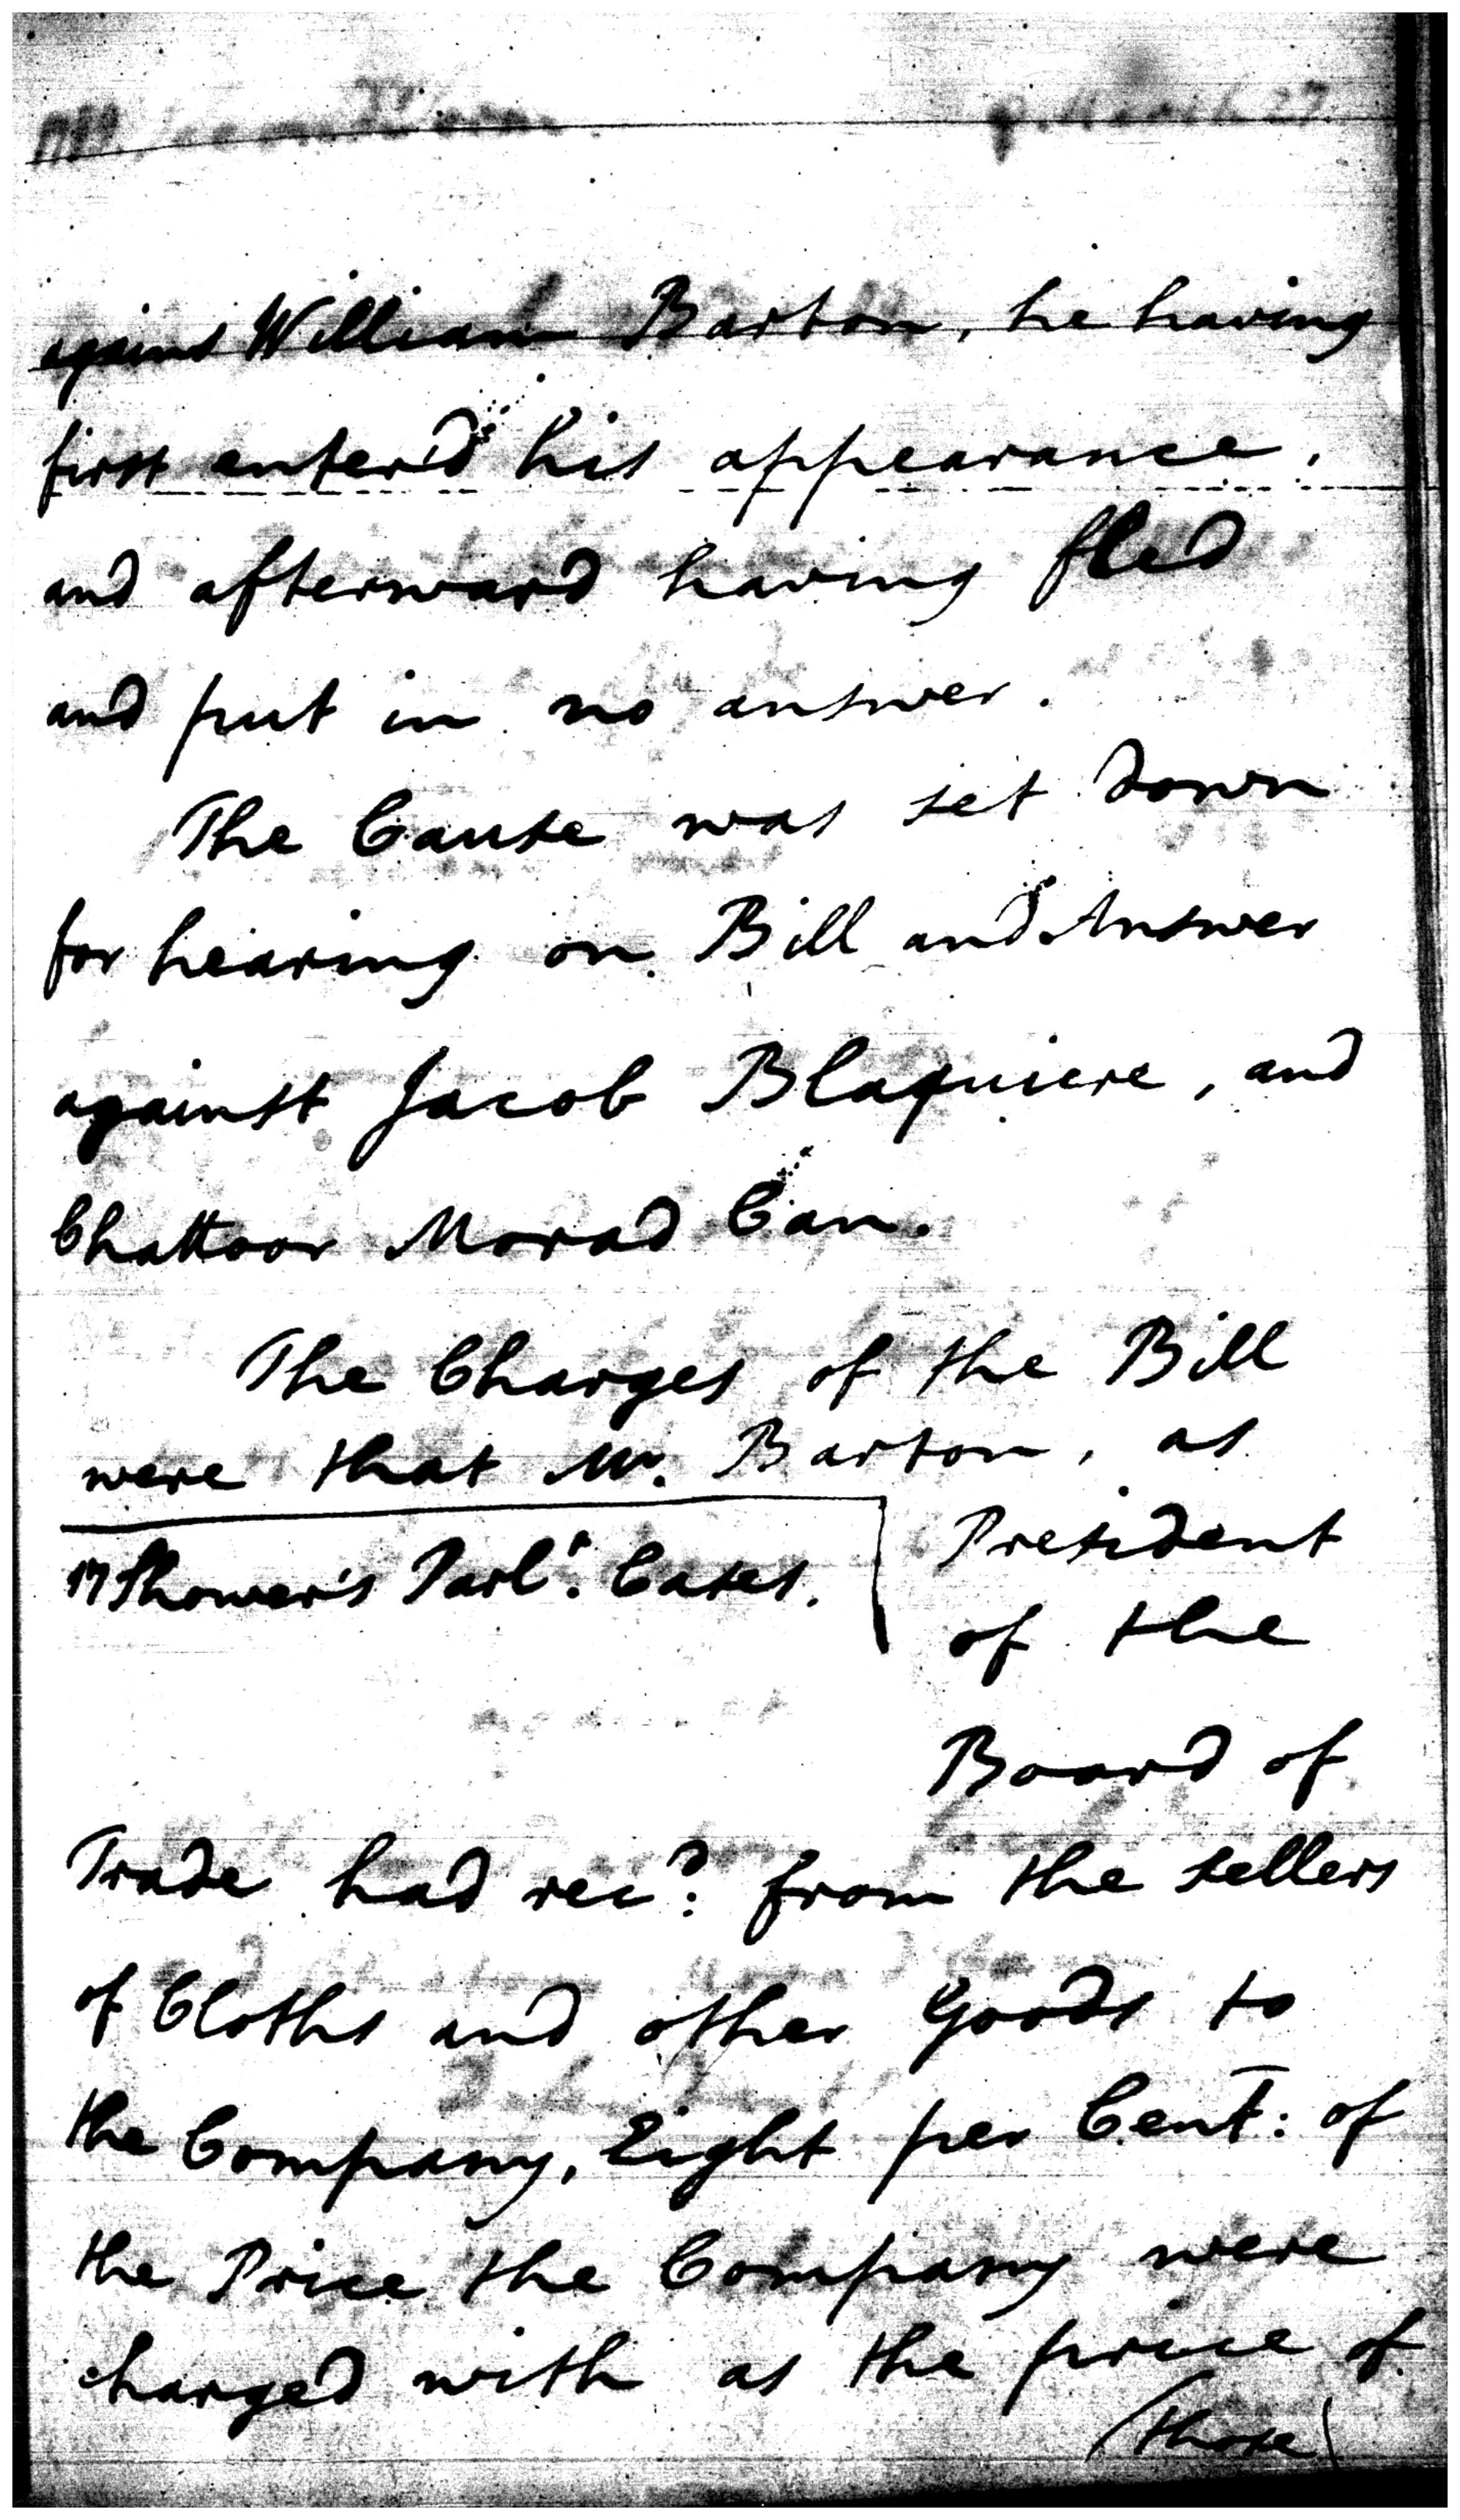 March 27.
against William Barton, he having
first enter'd his appearance,
and afterward having fled
and put in no answer.
The Cause was set down
for hearing on Bill and Answer
against Jacob Blaquiere, and
Chattoor Morad Can.
The Charges of the Bill
were that Mr. Barton, as
President
of the
Board of
Trade had recd: from the sellers
of Cloths and other Goods to
the Company, Eight per Cent: of
the Price the Company were
charged with as the price of
(those)
17 Shower's Parlt: Cases.